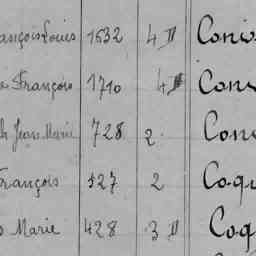 ançois Louis 1532 4 II Con
François 1710 4 Con
h Jean Marie 728 2 Con
rançois 527 2 Coqu
Marie 428 3 II Coq